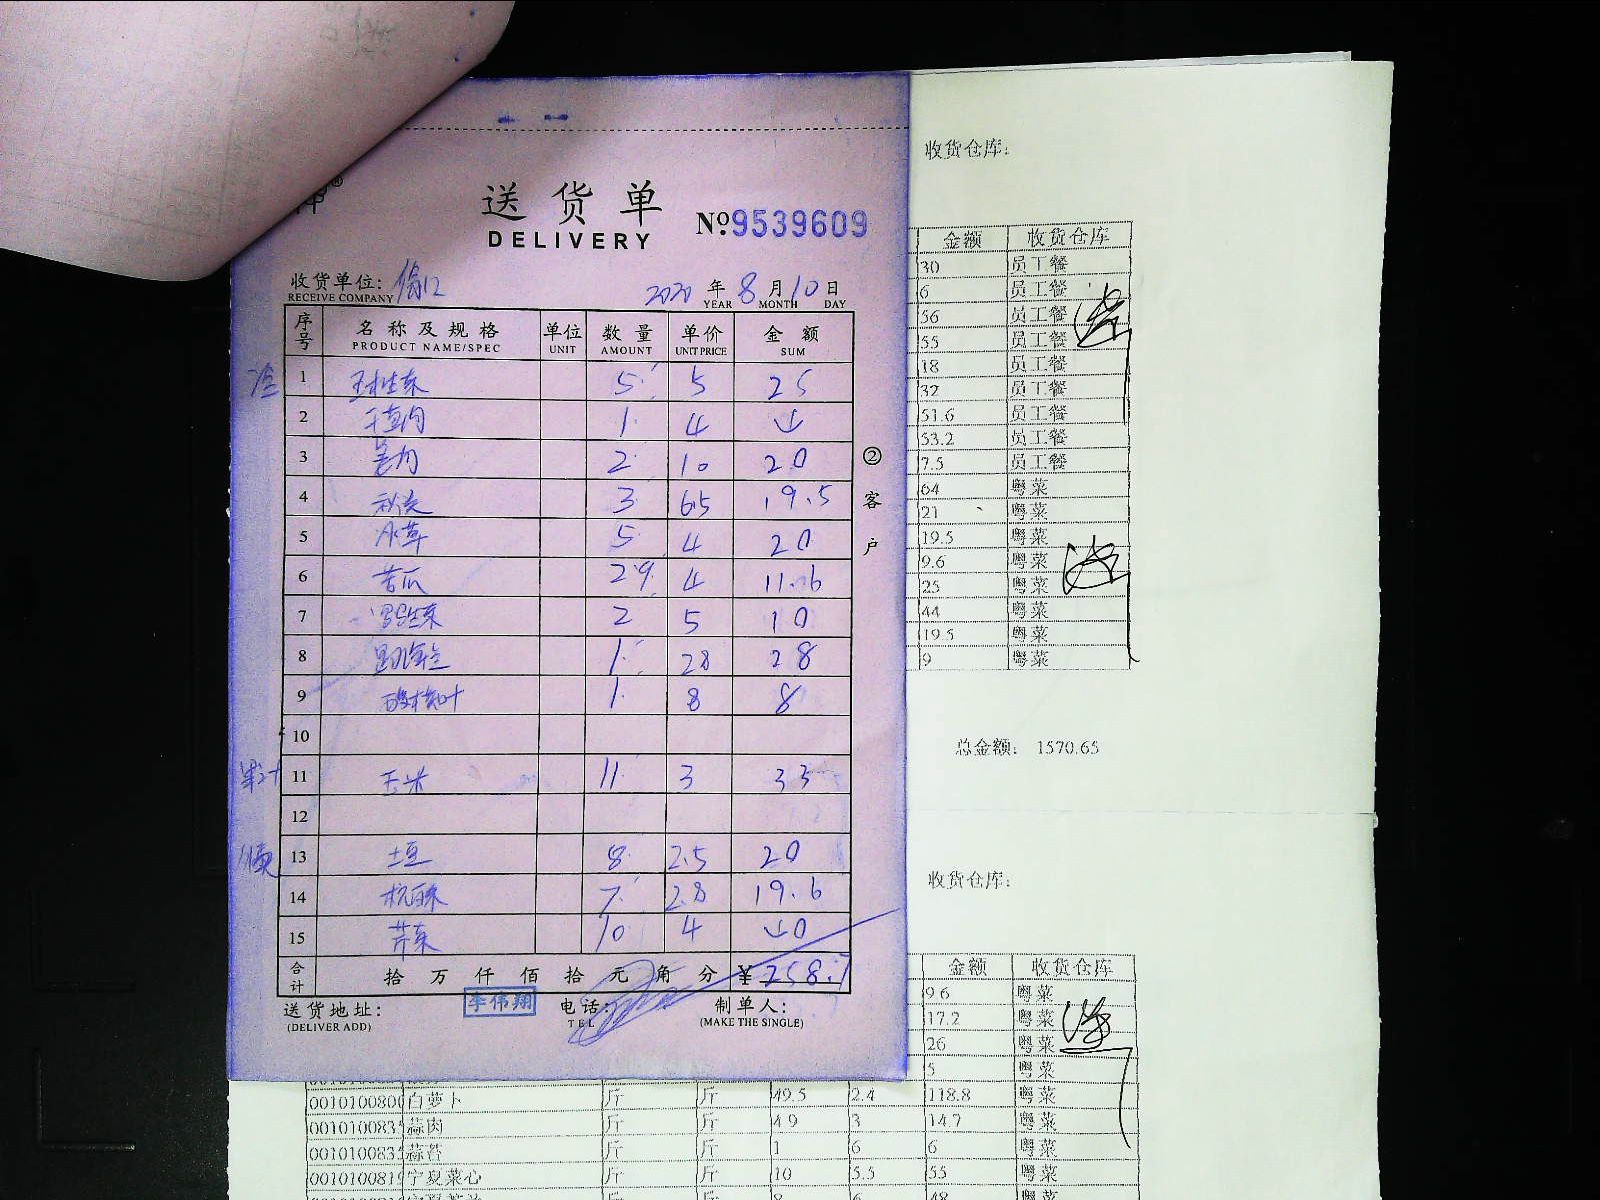 送货单
DELIVERY
№9539609
收货单位:
RECEIVE COMPANY
2020 年 8 月 10 日
YEAR MONTH DAY
序号 名称及规格 单位 数量 单价 金额
PRODUCT NAME/SPEC UNIT AMOUNT UNIT PRICE SUM
1 5 5 25
2 1 4 4
3 2 10 20
4 3 6.5 19.5
5 5 4 20
6 苦瓜 2.9 4 11.6
7 罗马生菜 2 5 10
8 1 28 28
9 1 8 8
10
11 玉米 11 3 33
12
13 土豆 8 2.5 20
14 杭白菜 7 2.8 19.6
15 芹菜 10 4 40
合计 拾万仟佰拾元角分 ¥258.7
送货地址: 李伟翔 电话: 制单人:
(DELIVER ADD) TEL (MAKE THE SINGLE)
②客户
收货仓库:
金额 收货仓库
30 员工餐
6 员工餐
56 员工餐
55 员工餐
18 员工餐
32 员工餐
51.6 员工餐
53.2 员工餐
7.5 员工餐
64 粤菜
21 粤菜
19.5 粤菜
9.6 粤菜
25 粤菜
44 粤菜
19.5 粤菜
9 粤菜
总金额: 1570.65
收货仓库:
金额 收货仓库
96 粤菜
17.2 粤菜
26 粤菜
5 粤菜
0010100800 白萝卜 斤 斤 49.5 2.4 118.8 粤菜
001010083 蒜肉 斤 斤 4.9 3 14.7 粤菜
001010083 蒜苔 斤 斤 1 6 6 粤菜
001010081 宁夏菜心 斤 斤 10 5.5 55 粤菜